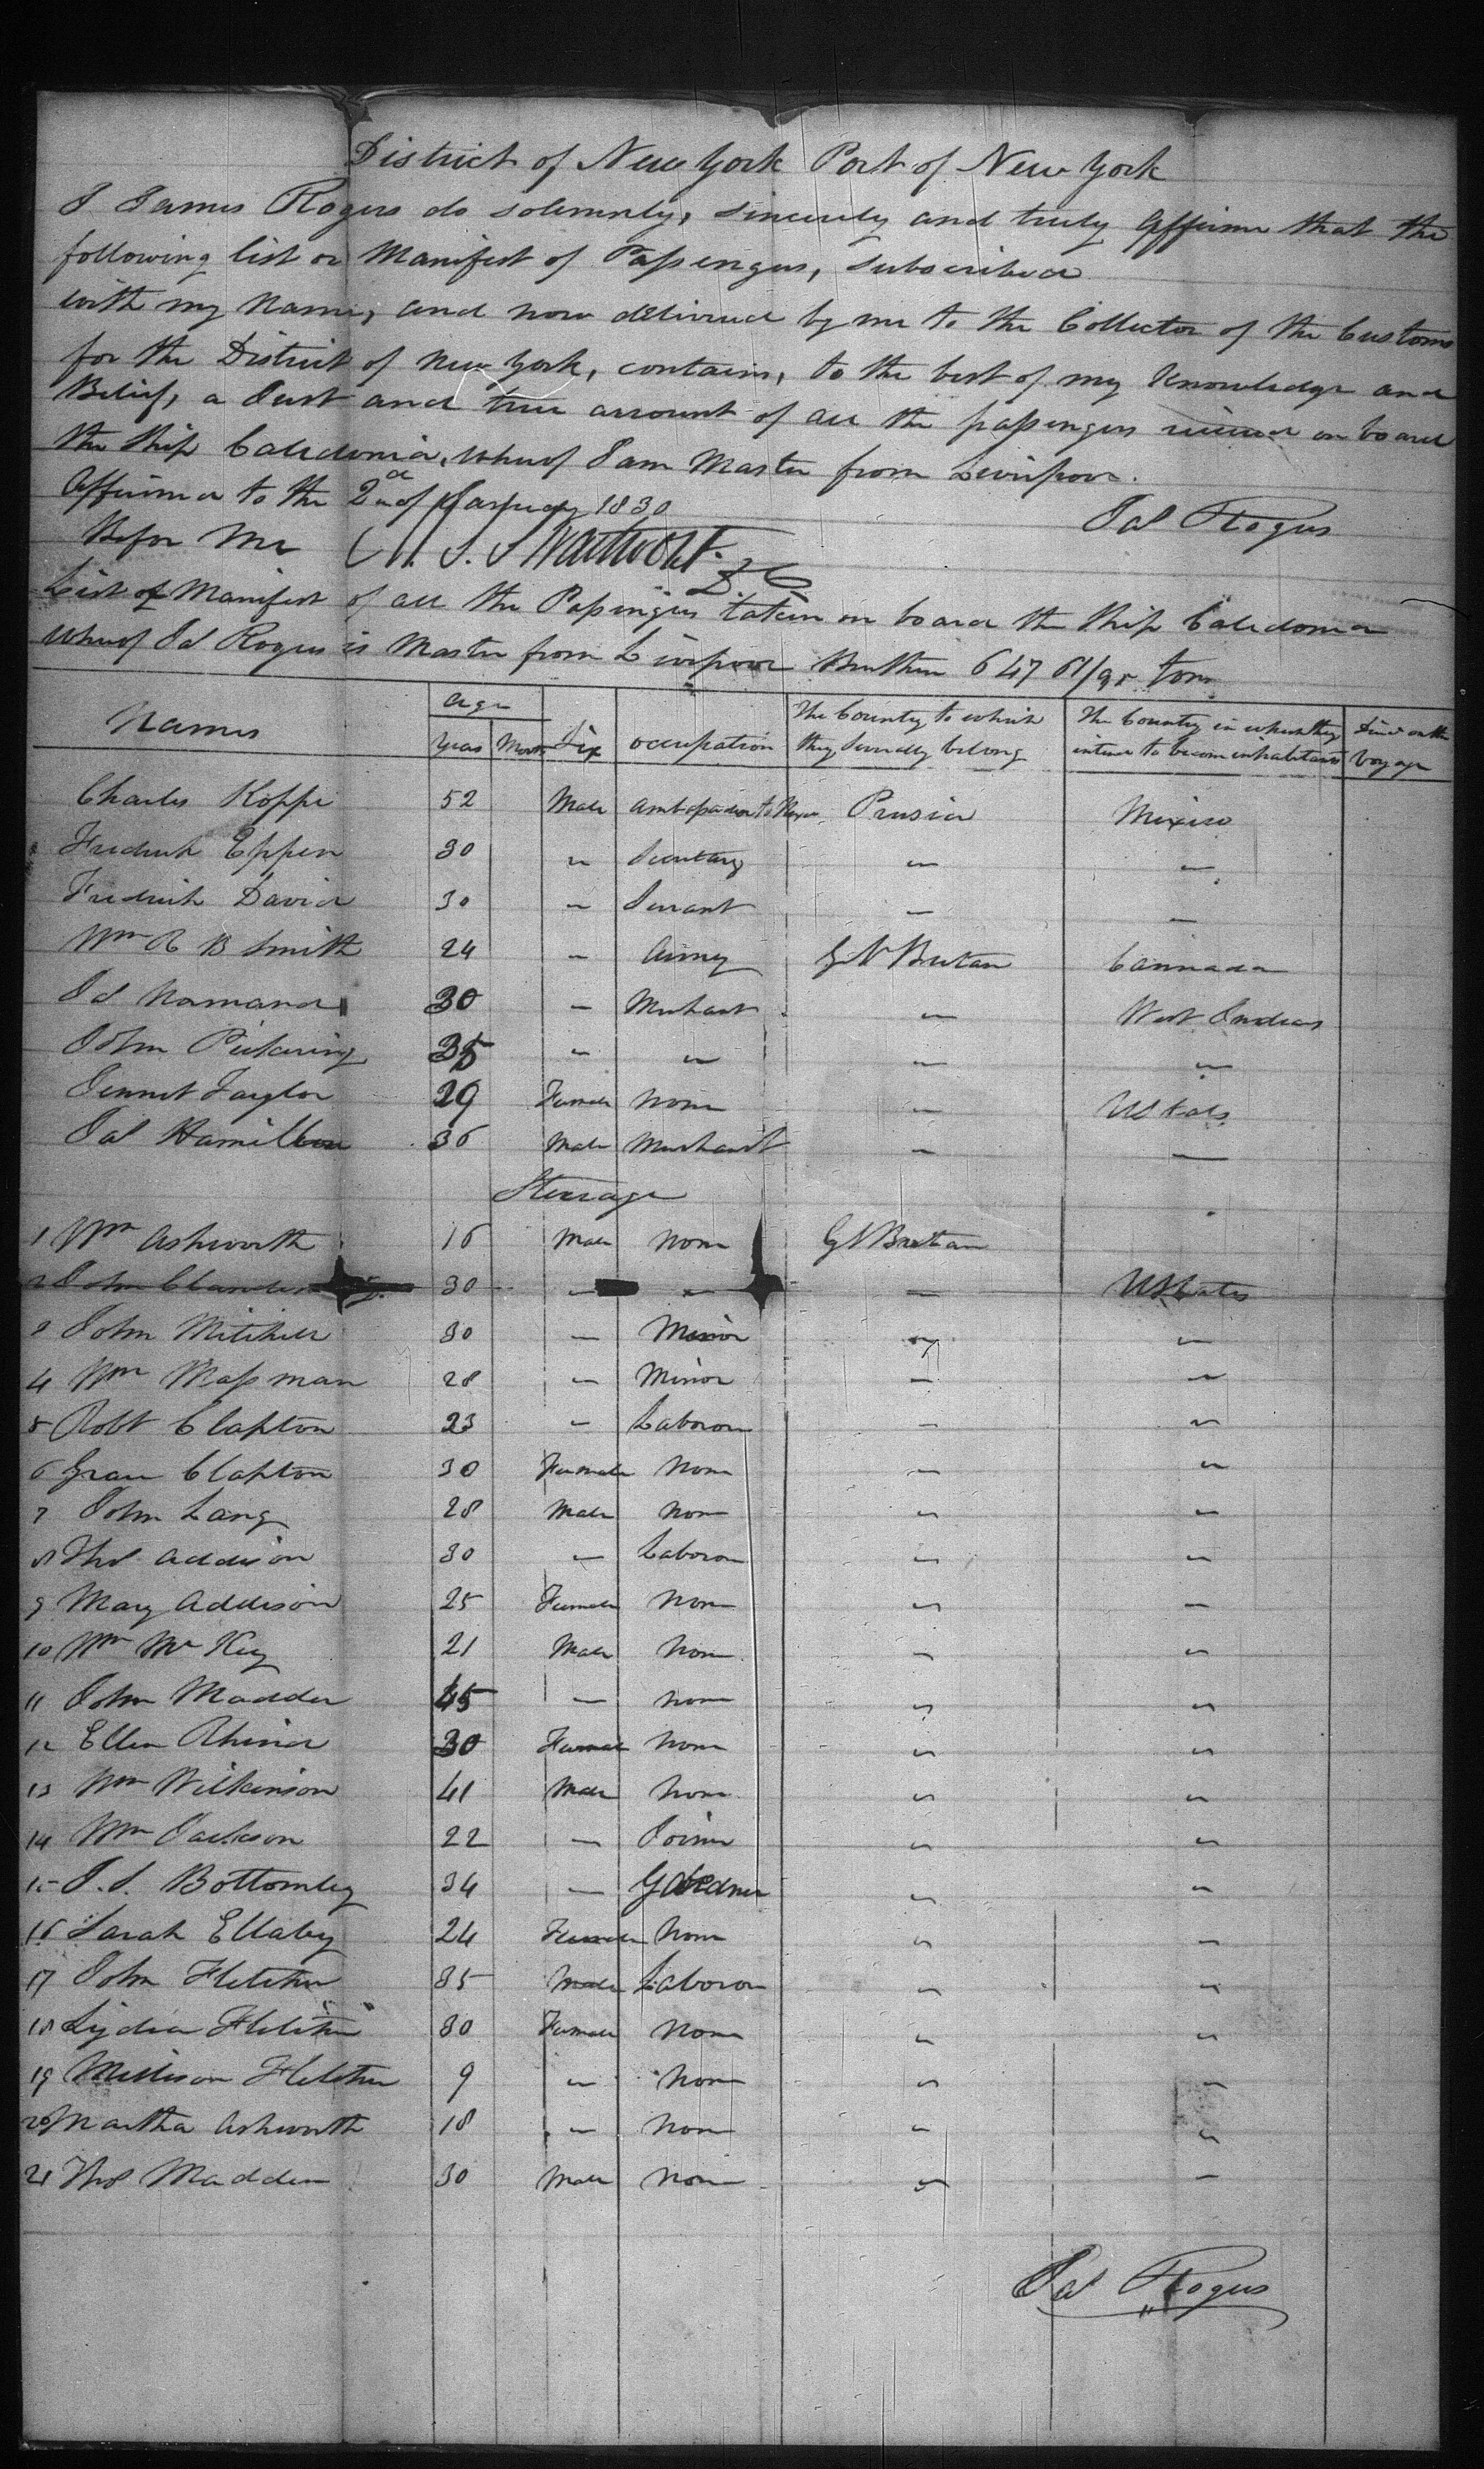 District of New York Port of New York
I James Rogers do solemnly, sincerely and truly affirm that the
following list or Manifest of Passengers, subscribed
with my Name, and now delivered by me to the Collector of the Customs
for the District of New York, contains, to the best of my Knowledge and
Belief, a Just and true account of all the passengers received on board
the Ship Caledonia, whereof I am Master from Liverpool.
Affirmed to the 2nd of January 1830
Jas Rogers
Before Me
List or Manifest of all the Passengers taken on board the Ship Caledonia
whereof Js Rogers is Master from Liverpool Burthen 647 61/95 tons
Names age Years Month Sex occupation The Country to which they severally belong The Country in which they intend to become inhabitants Died on the Voyage
Charles Koppe 52 Male Prusia Mexico
Fredrick Eppen 30 " Secretary " "
Fredrick David 30 " Servant " "
Wm R B Smith 24 " Army Gt Britan Cannada
Js Normand 30 " Merchant " West Indias
John Pickering 35 " " " "
Jennet Taylor 29 Female None " U States
Jas Hamilton 36 Male Merchant " "
Steerage
1 Wm Ashworth 16 Male None Gt Britan
2 John 30 " " " U States
3 John Mitchell 30 " Minor " "
4 Wm Massman 28 " Minor " "
5 Robt Clapton 23 " Laboror " "
6 Grace Clapton 30 Female None " "
7 John Lang 28 Male None " "
8 Thos Addison 30 " Laboror " "
9 Mary Addison 25 Female None " "
10 Wm Mc Key 21 Male None " "
11 John Madden 45 " None " "
12 Ellen 30 Female None " "
13 Wm Wilkinson 41 Male None " "
14 Wm Jackson 22 " Joiner " "
15 J. S. Bottomley 34 " Gardner " "
16 Sarah Ellaby 24 Female None " "
17 John Fletcher 35 Male Laboror " "
18 Lydia Fletcher 30 Female None " "
19 Fletcher 9 " None " "
20 Martha Ashworth 18 " None " "
21 Thos Madden 30 Male None " "
Jas Rogers